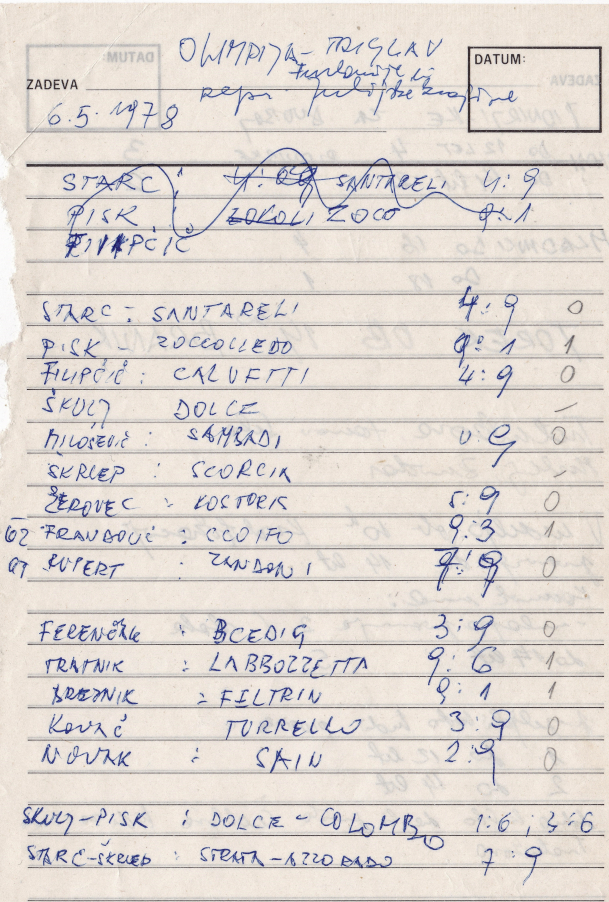 OLIMPIJA - TRIGLAV
DATUM:
ZADEVA
repr.
6.5.1978
STARC : SANTARELI 4:9
PISK ZOKOLI ZOCO 9:1
FILIPČIČ
STARC - SANTARELI 4:9 0
PISK - ZOCCOLLEDO 9:1 1
FILIPČIČ : CALVETTI 4:9 0
ŠKULJ DOLCE -
MILOŠEVIČ : SAMBADI 0
ŠKRLEP : SCORCIA -
ŽEROVEC : KOSTORIS 5:9 0
62 : CLOIFO 9:3 1
RUPERT : ZANDONI 0
FERENČAK : 3:9 0
TRATNIK : LABBOZZETTA 9:6 1
BREZNIK : FILTRIN 9:1 1
KOVAČ TURRELLO 3:9 0
NOVAK : SAIN 2:9 0
ŠKULJ-PISK : DOLCE - COLOMBO 1:6, 3:6
STARC-ŠKRLEP : STRATA - 7:9